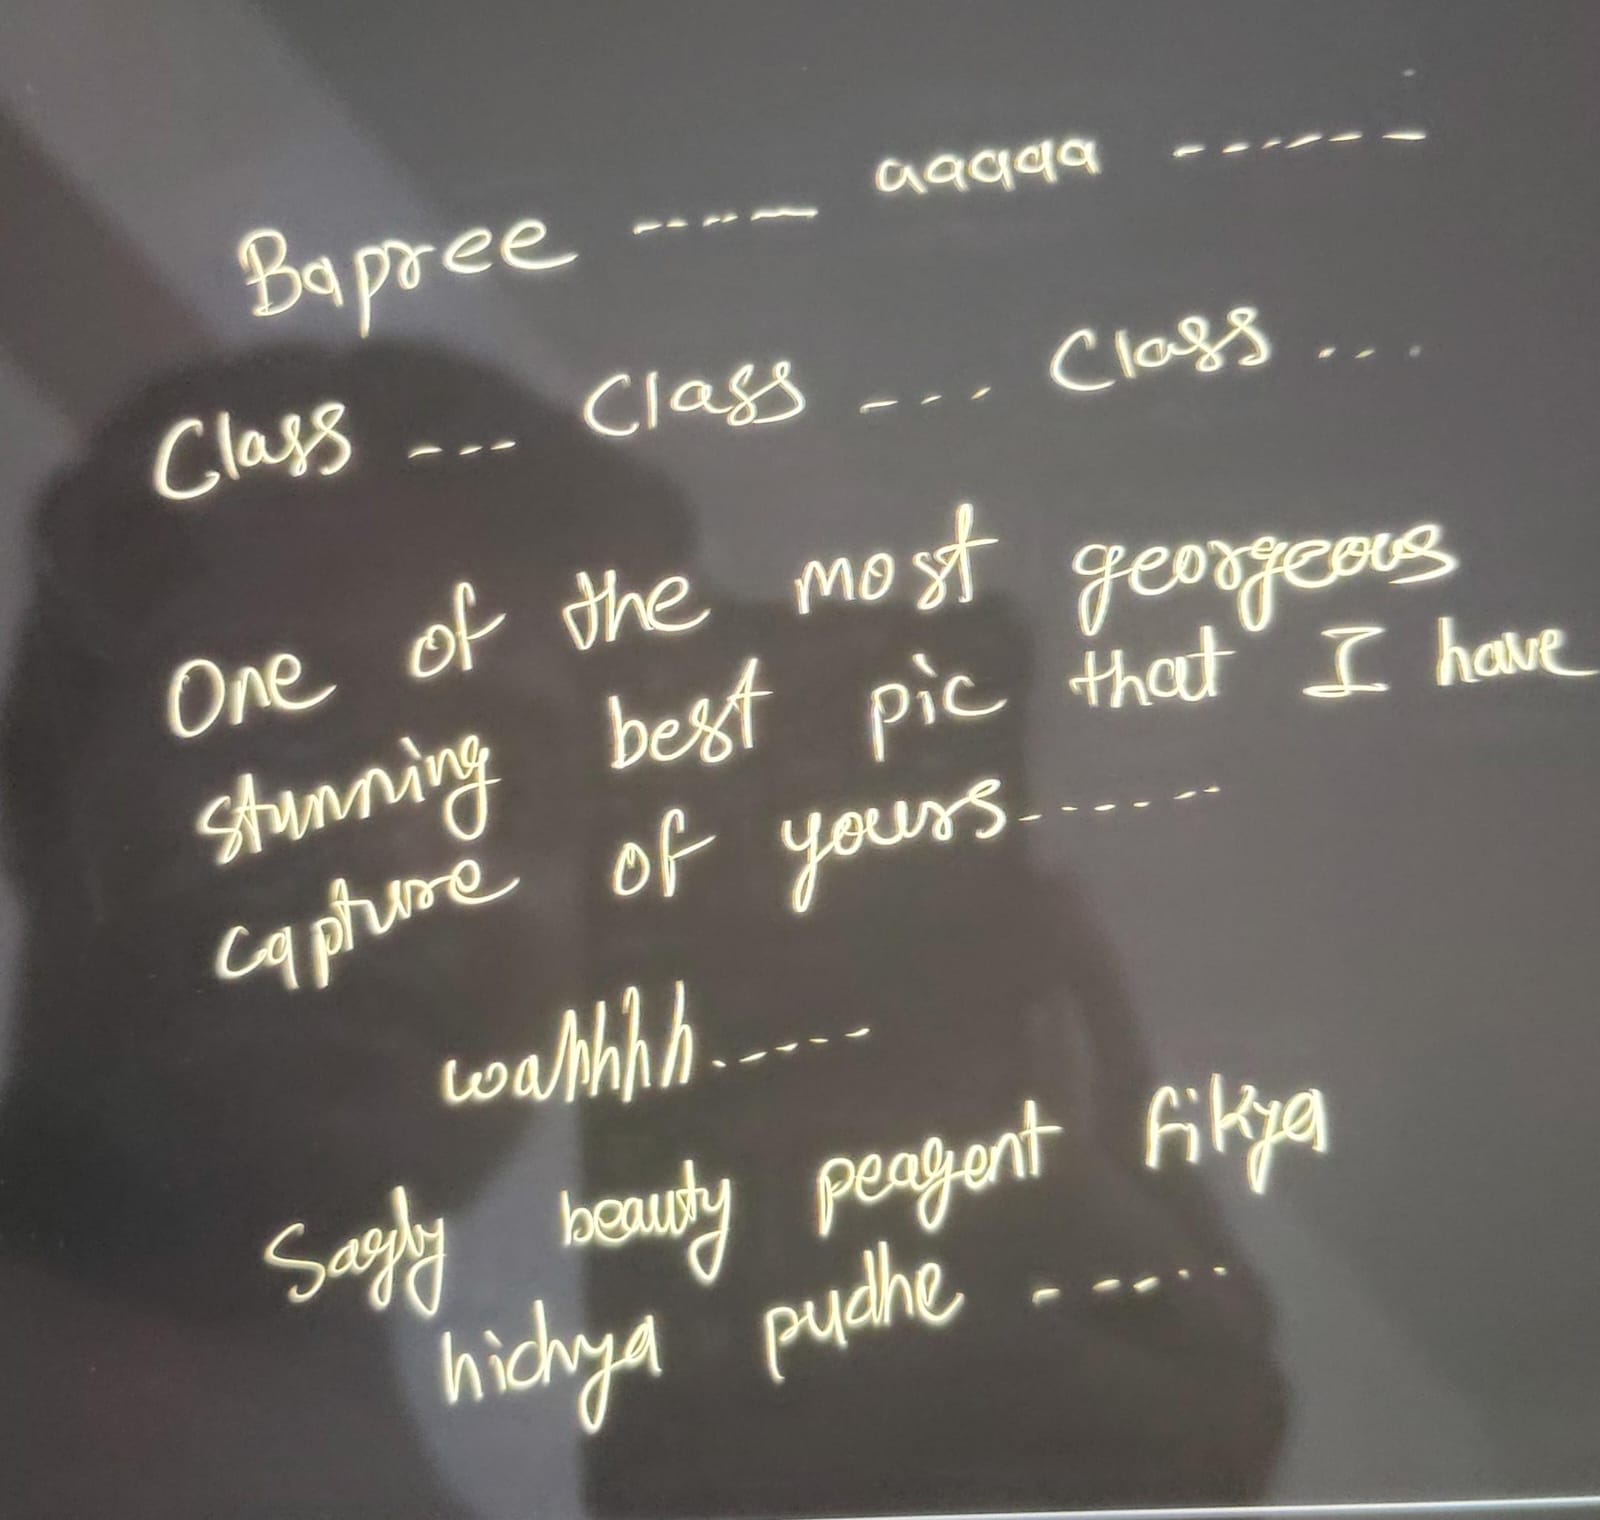 Bapree ----- aaaaa ------
Class --- Class ---- Class ....
One of the most georgeous
stunning best pic that I have
capture of yours.------
wahhhh.-----
Sagly beauty peagent fikya
hichya pudhe -----..